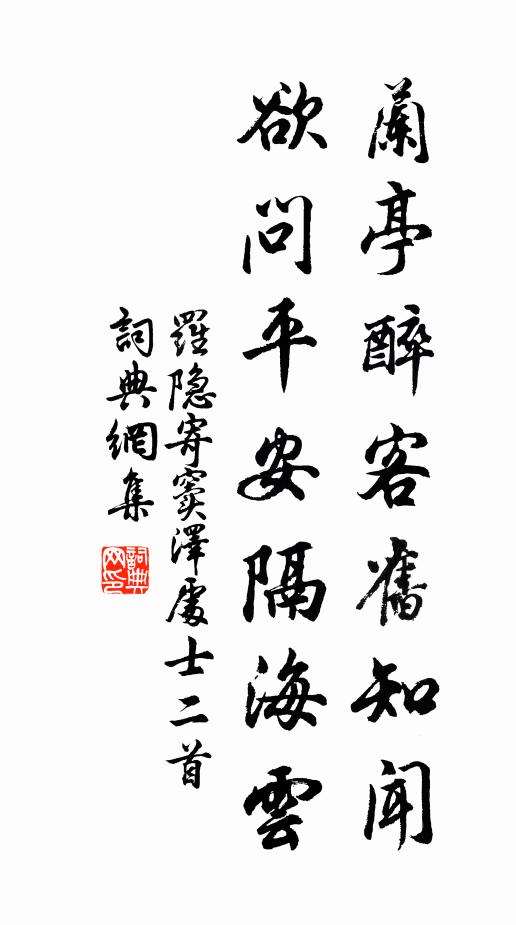 蘭亭醉客舊知聞
欲問平安隔海雲
羅隐寄竇澤處士二首
詞典網集
詞典
网印